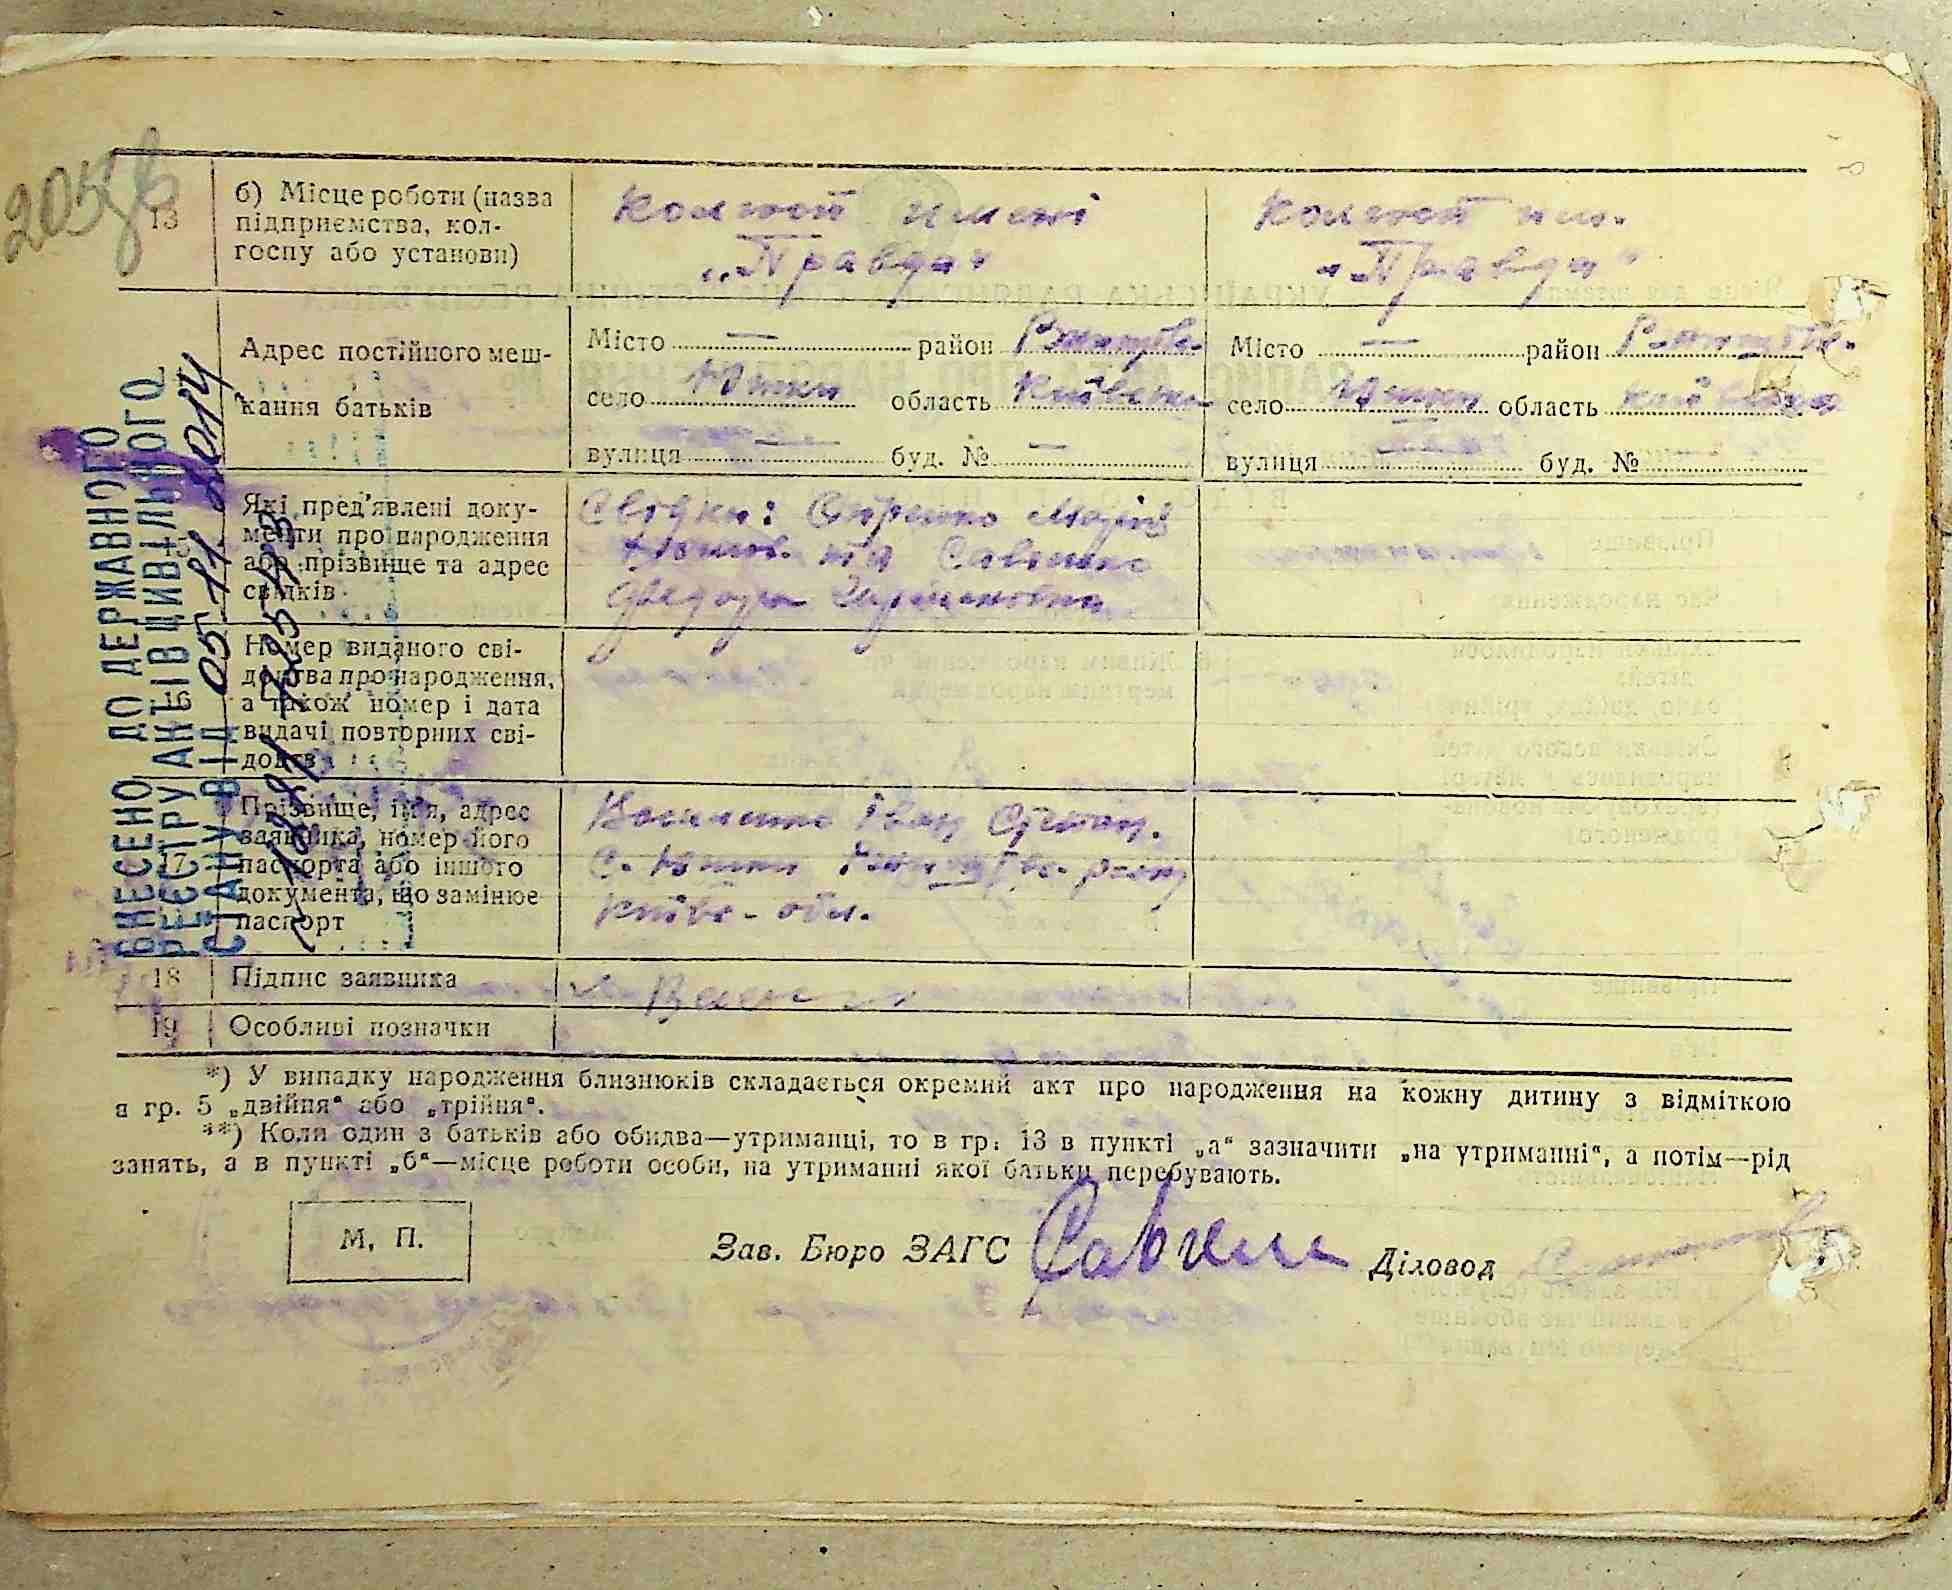 205
13
б) Місце роботи (назва
підприємства, кол-
госпу або установи)
колгосп имені
„Правда"
колгосп им.
„Правда"
Адрес постійного меш-
кання батьків
Місто — район Ржищів.
село Юшки область Київська
вулиця — буд. № —
Місто — район Ржищів.
село Юшки область київська
вулиця — буд. №
Які пред'явлені доку-
менти про народження
або прізвище та адрес
свідків
Свідки:
та Савенко
Федора
16
Номер виданого сві-
доцтва про народження,
а також номер і дата
видачі повторних сві-
доцтв
17
Прізвище, ім'я, адрес
заявника, номер його
паспорта або іншого
документа, що замінює
паспорт
Василенко Іван Степан.
с. Юшки Ржищів. району
Київс. обл.
18 Підпис заявника
19 Особливі позначки
ВНЕСЕНО ДО ДЕРЖАВНОГО
РЕЄСТРУ АКТІВ ЦИВІЛЬНОГО
СТАНУ ВІД 05 11 2014
*) У випадку народження близнюків складається окремий акт про народження на кожну дитину з відміткою
в гр. 5 „двійня" або „трійня".
**) Коли один з батьків або обидва—утриманці, то в гр. 13 в пункті „а" зазначити „на утриманні", а потім—рід
занять, а в пункті „б"—місце роботи особи, на утриманні якої батьки перебувають.
М. П.
Зав. Бюро ЗАГС
Діловод